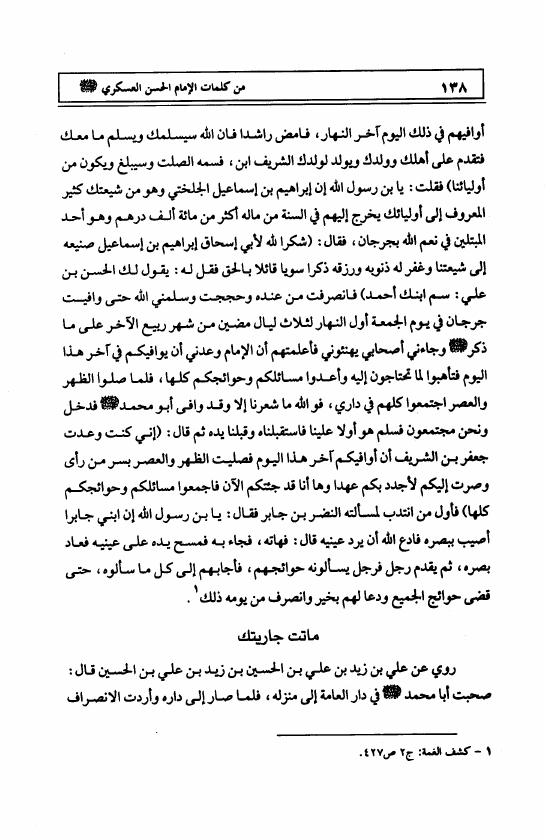 ١٣٨ من كلمات الإمام الحسن العسكري
أوافيهم في ذلك اليوم آخر النهار، فامض راشدا فان الله سيسلمك ويسلم ما معك
فتقدم على أهلك وولدك ويولد لولدك الشريف ابن، فسمه الصلت وسيبلغ ويكون من
أوليائنا) فقلت: يا بن رسول الله إن إبراهيم بن إسماعيل الجلختي وهو من شيعتك كثير
المعروف إلى أوليائك يخرج إليهم في السنة من ماله أكثر من مائة ألف درهم وهو أحد
المبتلين في نعم الله بجرجان، فقال: (شكرا لله لأبي إسحاق إبراهيم بن إسماعيل صنيعه
إلى شيعتنا وغفر له ذنوبه ورزقه ذكرا سويا قائلا بالحق فقل له: يقول لك الحسن بن
علي: سم ابنك أحمد) فانصرفت من عنده وحججت وسلمني الله حتى وافيت
جرجان في يوم الجمعة أول النهار لثلاث ليال مضين من شهر ربيع الآخر على ما
ذكر وجاءني أصحابي يهنئوني فأعلمتهم أن الإمام وعدني أن يوافيكم في آخر هذا
اليوم فتأهبوا لما تحتاجون إليه وأعدوا مسائلكم وحوائجكم كلها، فلما صلوا الظهر
والعصر اجتمعوا كلهم في داري، فو الله ما شعرنا إلا وقد وافى أبو محمد فدخل
ونحن مجتمعون فسلم هو أولا علينا فاستقبلناه وقبلنا يده ثم قال: (إني كنت وعدت
جعفر بن الشريف أن أوافيكم آخر هذا اليوم فصليت الظهر والعصر بسر من رأى
وصرت إليكم لأجدد بكم عهدا وها أنا قد جئتكم الآن فاجمعوا مسائلكم وحوائجكم
كلها) فأول من انتدب لمسألته النضر بن جابر فقال: يا بن رسول الله إن ابني جابرا
أصيب ببصره فادع الله أن يرد عينيه قال: فهاته، فجاء به فمسح يده على عينيه فعاد
بصره، ثم يقدم رجل فرجل يسألونه حوائجهم، فأجابهم إلى كل ما سألوه، حتى
قضى حوائج الجميع ودعا لهم بخير وانصرف من يومه ذلك١.
ماتت جاريتك
روي عن علي بن زيد بن علي بن الحسين بن زيد بن علي بن الحسين قال:
صحبت أبا محمد في دار العامة إلى منزله، فلما صار إلى داره وأردت الانصراف
١ - كشف الغمة: ج٢ ص٤٢٧.